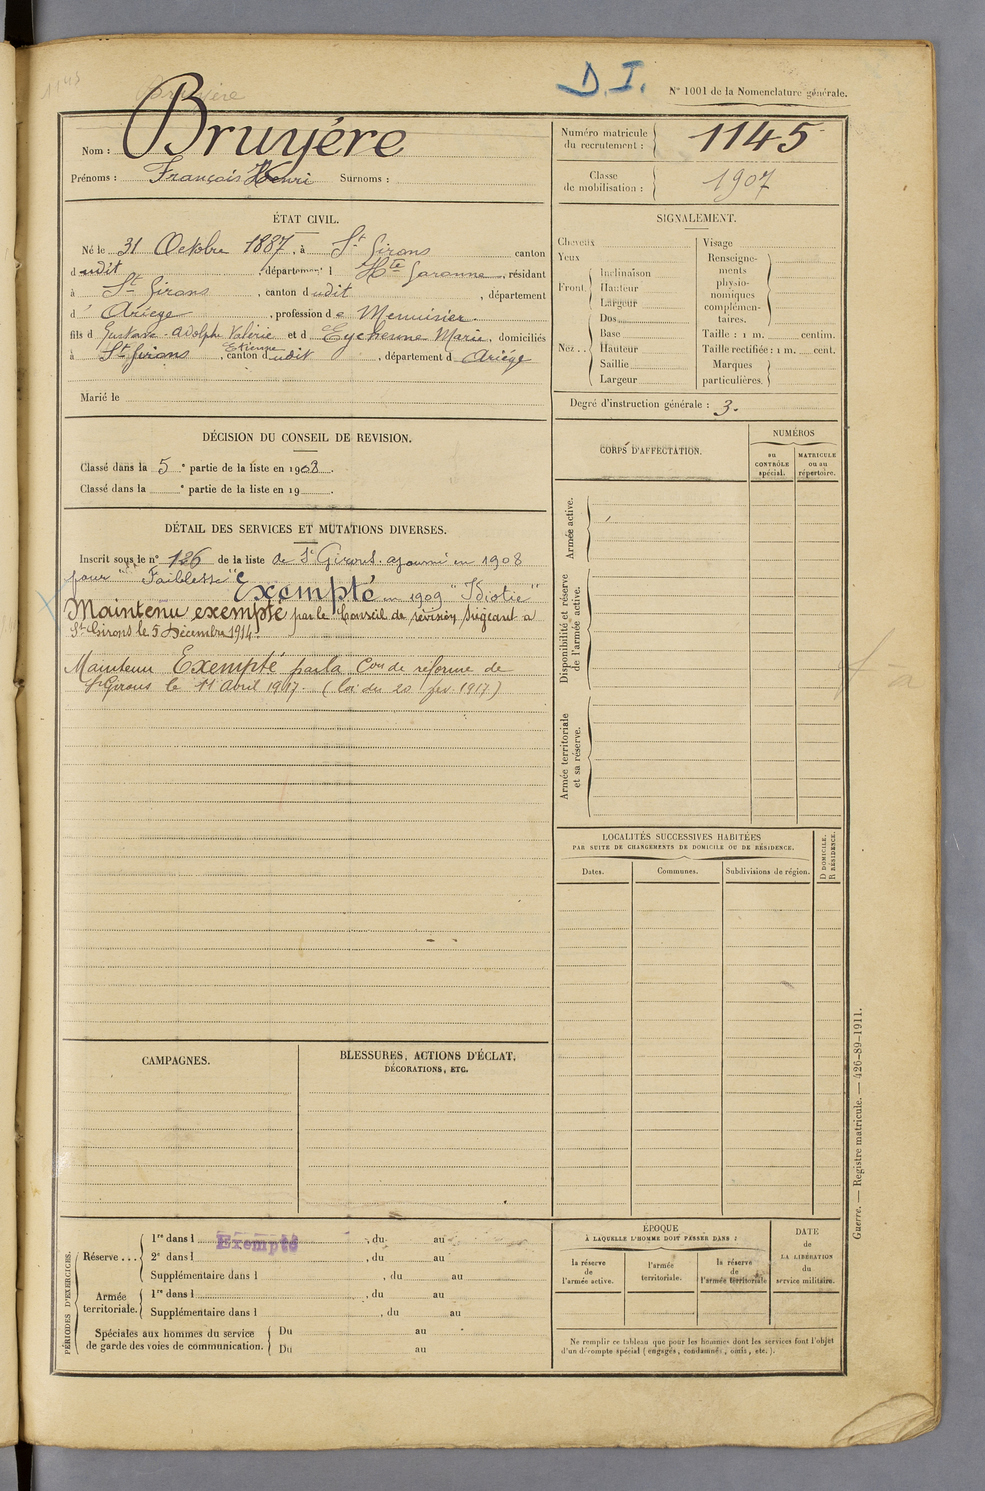 1145
Bruyère
D.I.
N° 1001 de la Nomenclature générale.
Nom : Bruyère
Prénoms : François Henri Surnoms :
Numéro matricule du recrutement : 1145
Classe de mobilisation : 1907
ÉTAT CIVIL.
Né le 31 Octobre 1887, à St Girons canton
dudit, département d Hte Garonne, résidant
à St Girons, canton dudit, département
d' Ariège, profession de Menuisier.
fils d Gustave-Adolphe Valérie Etienne et d Eychenne Maria, domiciliés
à St Girons, canton dudit, département d Ariège
Marié le
SIGNALEMENT.
Cheveux
Yeux
Front. Inclinaison
Hauteur
Largeur
Nez.. Dos
Base
Hauteur
Saillie
Largeur
Visage
Renseignements physionomiques complémentaires.
Taille : 1 m. centim.
Taille rectifiée : 1 m. cent.
Marques particulières.
Degré d'instruction générale : 3.
DÉCISION DU CONSEIL DE REVISION.
Classé dans la 5e partie de la liste en 1908.
Classé dans la e partie de la liste en 19 .
DÉTAIL DES SERVICES ET MUTATIONS DIVERSES.
Inscrit sous le n° 126 de la liste de St Girons. ajourné en 1908
pour "Faiblesse" Exempté en 1909 "Idiotie"
Maintenu exempté par le Conseil de révision siégeant à
St Girons le 5 Décembre 1914.
Maintenu Exempté par la Con de réforme de
St Girons le 11 Avril 1917. (loi du 20 fév. 1917.)
CORPS D'AFFECTATION.
NUMÉROS
au CONTRÔLE spécial.
MATRICULE ou au répertoire.
Armée active.
Disponibilité et réserve de l'armée active.
Armée territoriale et sa réserve.
LOCALITÉS SUCCESSIVES HABITÉES
PAR SUITE DE CHANGEMENTS DE DOMICILE OU DE RÉSIDENCE.
Dates.
Communes.
Subdivisions de région.
D DOMICILE.
R RÉSIDENCE.
CAMPAGNES.
BLESSURES, ACTIONS D'ÉCLAT,
DÉCORATIONS, ETC.
PÉRIODES D'EXERCICES.
Réserve... 1re dans l Exempté, du au
2e dans l , du au
Supplémentaire dans l , du au
Armée territoriale. 1re dans l , du au
Supplémentaire dans l , du au
Spéciales aux hommes du service de garde des voies de communication. Du au
Du au
ÉPOQUE
À LAQUELLE L'HOMME DOIT PASSER DANS :
la réserve de l'armée active.
l'armée territoriale.
la réserve de l'armée territoriale
DATE
de
LA LIBÉRATION
du
service militaire.
Ne remplir ce tableau que pour les hommes dont les services font l'objet
d'un décompte spécial (engagés, condamnés, omis, etc.).
Guerre. — Registre matricule. — 426-89-1911.